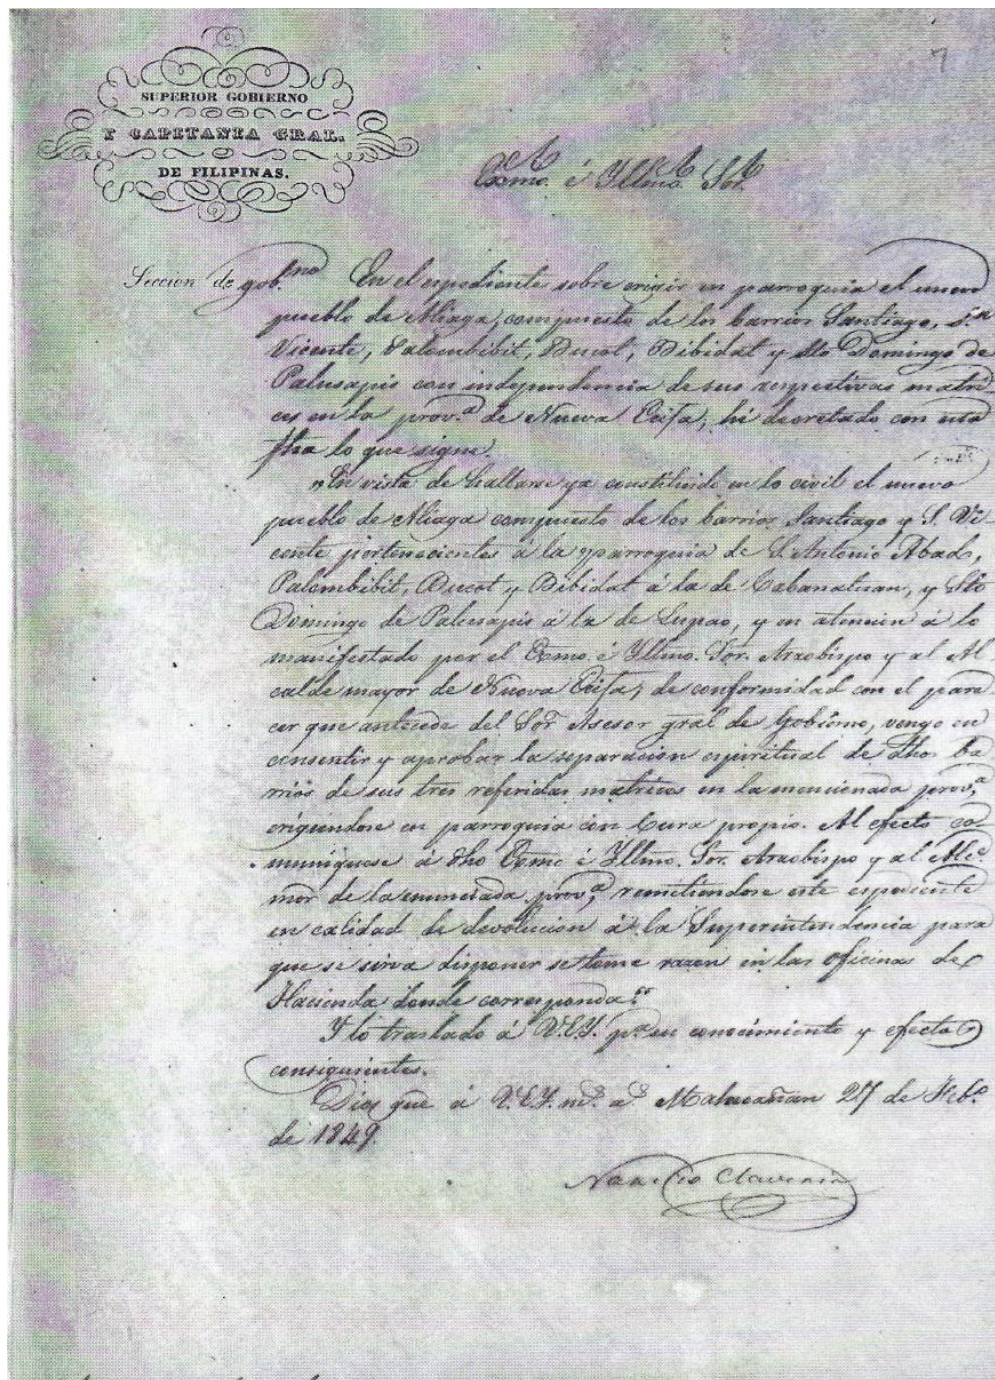 7
SUPERIOR GOBIERNO
Y CAPITANIA GRAL.
DE FILIPINAS.
Exmo. é Yllmo. Sor.
Seccion de gob.no
En el espediente sobre erigir en parroquia el nuevo
pueblo de Aliaga, compuesto de los barrios Santiago, S.n
Vicente, Palombibit, Bucot, Bibidat y Sto Domingo de
Palusapis con independencia de sus respectivas matri-
ces en la prov.a de Nueva Ecija, hé decretado con esta
fha lo que sigue.
"En vista de hallarse ya constituido en lo civil el nuevo
pueblo de Aliaga compuesto de los barrios Santiago y S. Vi-
cente pertenecientes á la parroquia de S. Antonio Abad,
Palombibit, Bucot y Bibidat á la de Cabanatuan, y Sto
Domingo de Palusapis á la de Lupao, y en atencion á lo
manifestado por el Exmo. é Yllmo. Sor. Arzobispo y al Al
calde mayor de Nueva Ecija; de conformidad con el pare
cer que antecede del Sor Asesor gral de Gobierno, vengo en
consentir y aprobar la separacion espiritual de dhos ba
rrios de sus tres referidas matrices en la mencionada prov.a
erigiendose en parroquia con Cura propio. Al efecto co-
muniquese á dho Exmo é Yllmo. Sor. Arzobispo y al Alc.e
mor de la enunciada prov.a, remitiendose este espediente
en calidad de devolucion á la Superintendencia para
que se sirva disponer se tome razon en las oficinas de
Hacienda donde corresponda."
Y lo traslado á V.E.Y. p.a su conocimiento y efectos
consiguientes.
Dios gue á V.E.Y. m.s a.s Malacañan 27 de Feb.o
de 1849.
Narciso Claveria